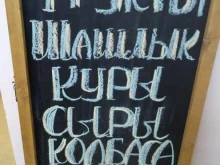 ШАШЛЫК
КУРЫ
СЫРЫ
КОЛБАСА